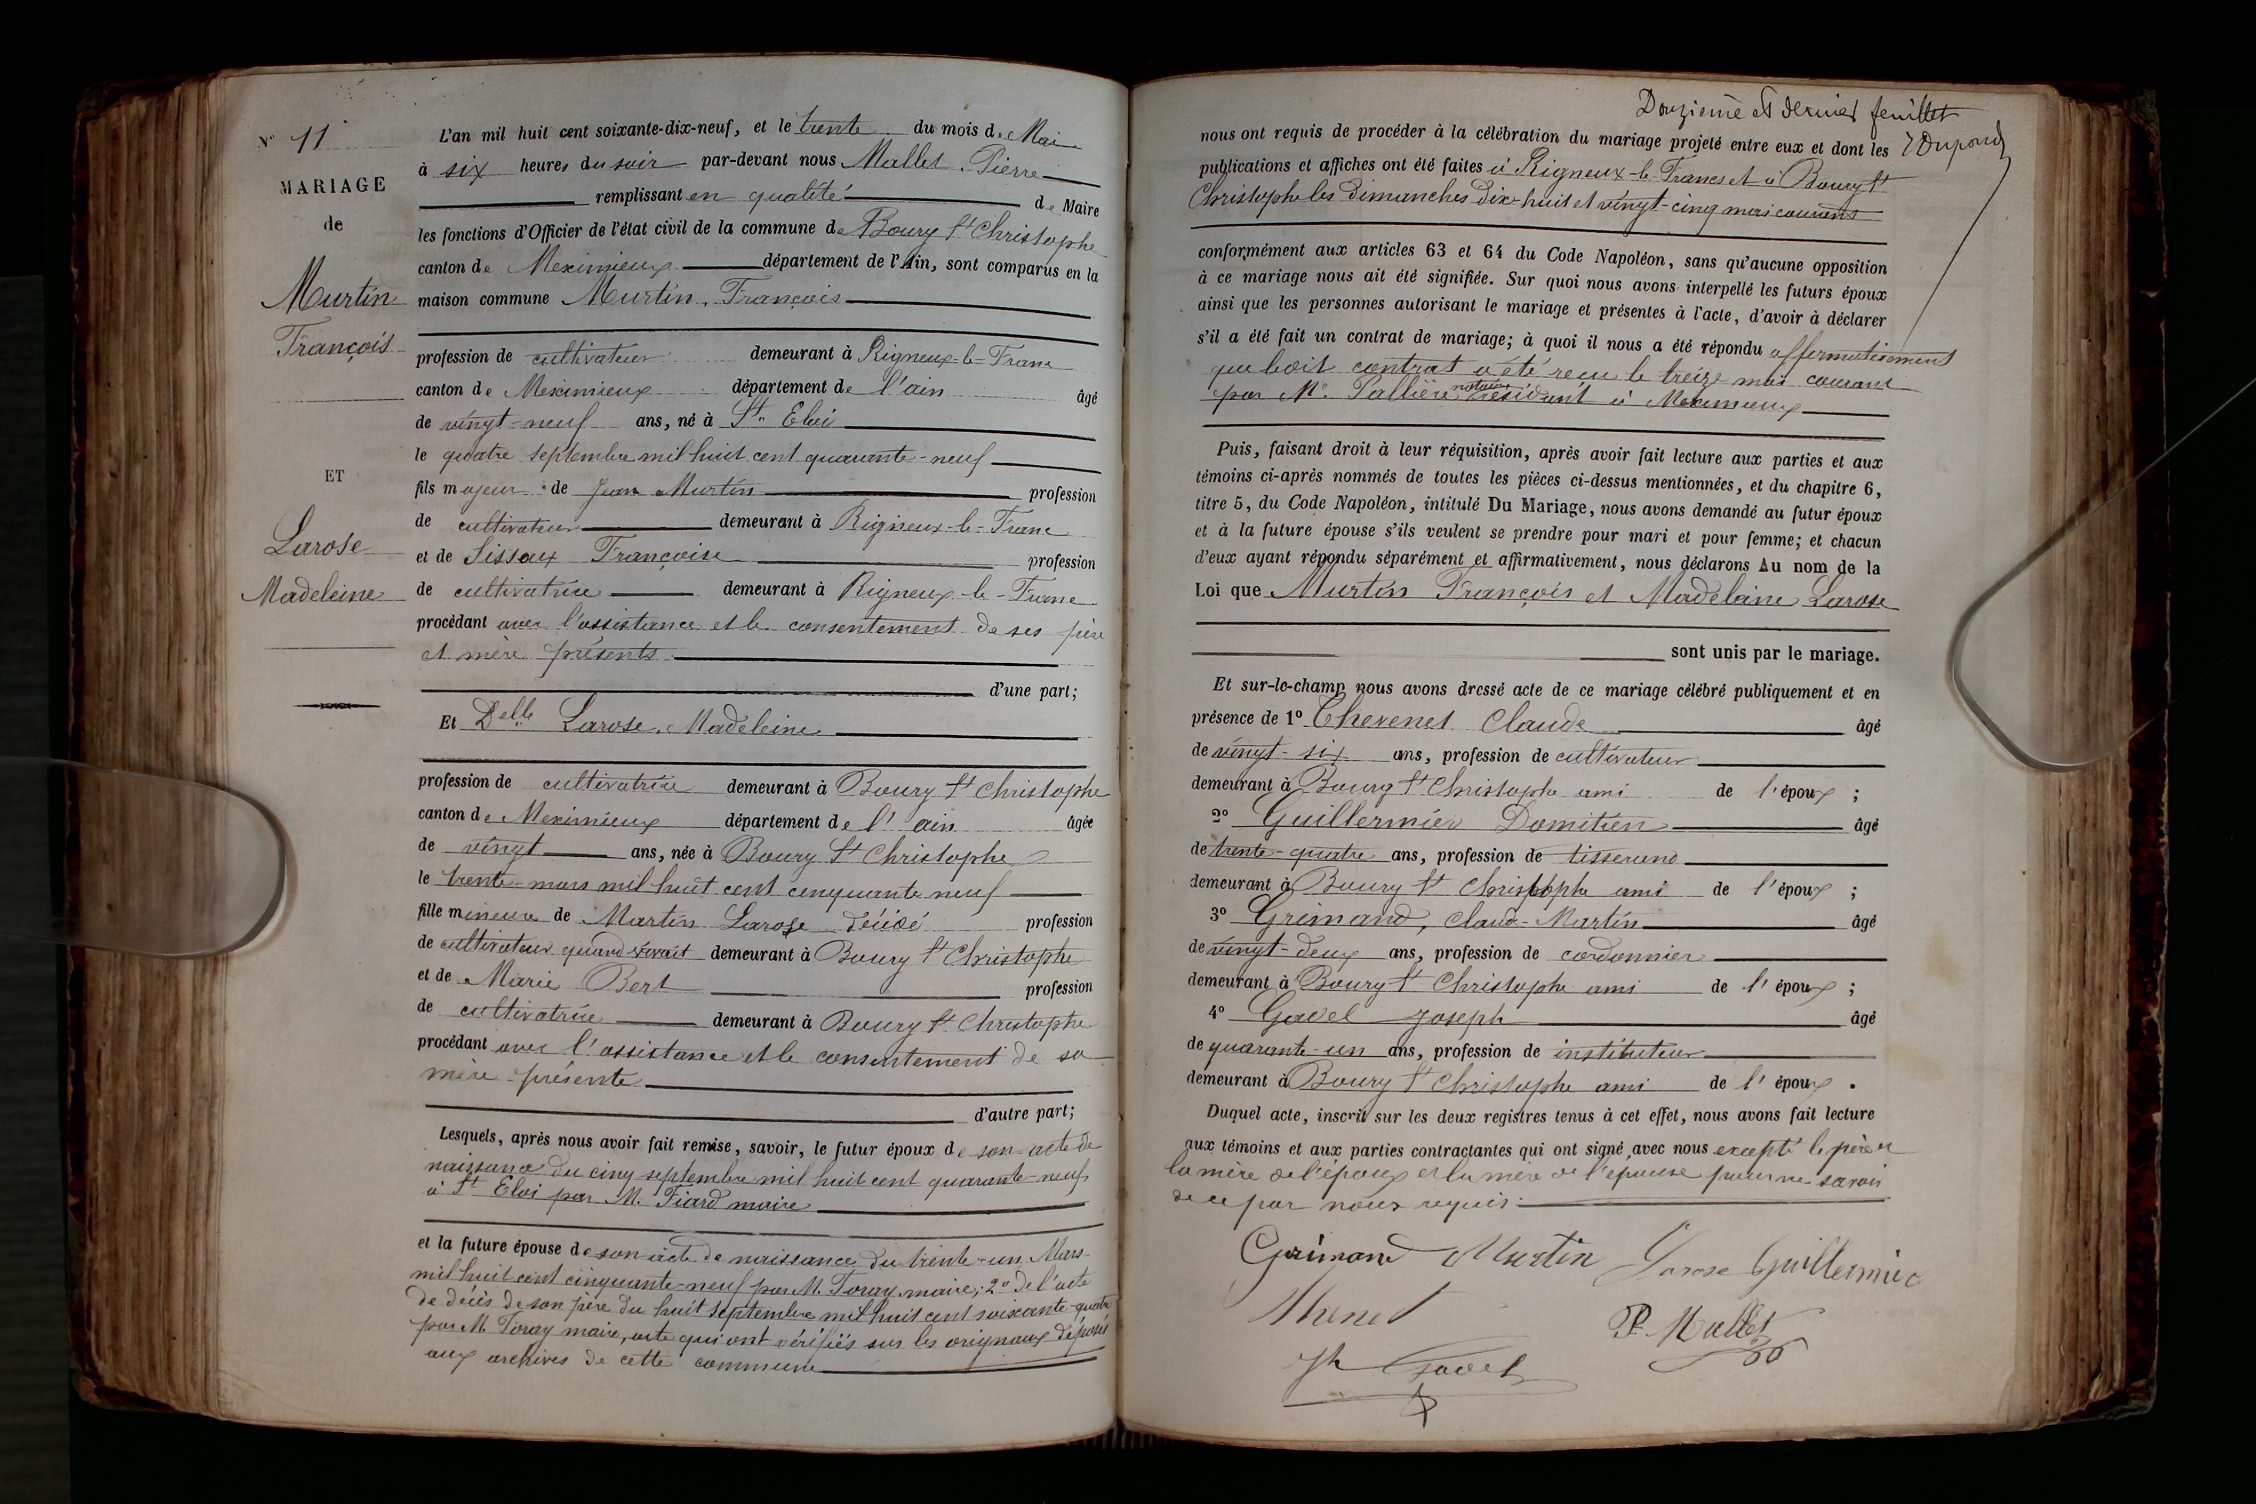 N° 11
MARIAGE
de
Murtin
François
ET
Larose
Madeleine
L'an mil huit cent soixante-dix-neuf, et le trente du mois de Mai
à six heures du soir par-devant nous Mallet Pierre
remplissant en qualité de Maire
les fonctions d'Officier de l'état civil de la commune de Bourg St Christophe
canton de Meximieux département de l'Ain, sont comparus en la
maison commune Murtin, François
profession de cultivateur demeurant à Rigneux-le-Franc
canton de Meximieux département de l'ain âgé
de vingt-neuf ans, né à St Eloi
le quatre septembre mil huit cent quarante-neuf
fils majeur de Jean Murtin profession
de cultivateur demeurant à Rigneux-le-Franc
et de Sissoux Françoise profession
de cultivatrice demeurant à Rigneux-le-Franc
procédant avec l'assistance et le consentement de ses père
et mère présents
d'une part;
Et Delle Larose, Madeleine
profession de cultivatrice demeurant à Bourg St Christophe
canton de Meximieux département de l'ain âgée
de vingt ans, née à Bourg St Christophe
le trente mars mil huit cent cinquante neuf
fille mineure de Martin Larose décédé profession
de cultivateur quand vivait demeurant à Bourg St Christophe
et de Marie Bert profession
de cultivatrice demeurant à Bourg St Christophe
procédant avec l'assistance et le consentement de sa
mère présente
d'autre part;
Lesquels, après nous avoir fait remise, savoir, le futur époux de son acte de
naissance du cinq septembre mil huit cent quarante-neuf
à St Eloi par M. Fiard maire
et la future épouse de son acte de naissance du trente-un Mars
mil huit cent cinquante-neuf par M. Toray maire; 2° de l'acte
de décès de son père du huit septembre mil huit cent soixante-quatre
par M. Toray maire, acte qui ont vérifiés sur les originaux déposés
aux archives de cette commune
Douzième et dernier feuillet
Dupond
nous ont requis de procéder à la célébration du mariage projeté entre eux et dont les
publications et affiches ont été faites à Rigneux-le-Franc et à Bourg St
Christophe les dimanches dix-huit et vingt-cinq mai courant
conformément aux articles 63 et 64 du Code Napoléon, sans qu'aucune opposition
à ce mariage nous ait été signifiée. Sur quoi nous avons interpellé les futurs époux
ainsi que les personnes autorisant le mariage et présentes à l'acte, d'avoir à déclarer
s'il a été fait un contrat de mariage; à quoi il nous a été répondu affirmativement
que ledit contrat a été reçu le treize mai courant
par Me Pallière notaire résidant à Meximieux
Puis, faisant droit à leur réquisition, après avoir fait lecture aux parties et aux
témoins ci-après nommés de toutes les pièces ci-dessus mentionnées, et du chapitre 6,
titre 5, du Code Napoléon, intitulé Du Mariage, nous avons demandé au futur époux
et à la future épouse s'ils veulent se prendre pour mari et pour femme; et chacun
d'eux ayant répondu séparément et affirmativement, nous déclarons Au nom de la
Loi que Murtin François et Madeleine Larose
sont unis par le mariage.
Et sur-le-champ nous avons dressé acte de ce mariage célébré publiquement et en
présence de 1° Thevenet Claude âgé
de vingt-six ans, profession de cultivateur
demeurant à Bourg St Christophe ami de l'époux ;
2° Guillermier Domitien âgé
de trente-quatre ans, profession de tisserand
demeurant à Bourg St Christophe ami de l'époux ;
3° Grimand, Claude-Martin âgé
de vingt-deux ans, profession de cordonnier
demeurant à Bourg St Christophe ami de l'époux ;
4° Gavel Joseph âgé
de quarante-un ans, profession de instituteur
demeurant à Bourg St Christophe ami de l'époux .
Duquel acte, inscrit sur les deux registres tenus à cet effet, nous avons fait lecture
aux témoins et aux parties contractantes qui ont signé avec nous excepté le père et
la mère de l'époux et la mère de l'épouse pour ne savoir
de ce par nous requis
Grimand Murtin Larose Guillermier
P. Mallet
Jh Gavel